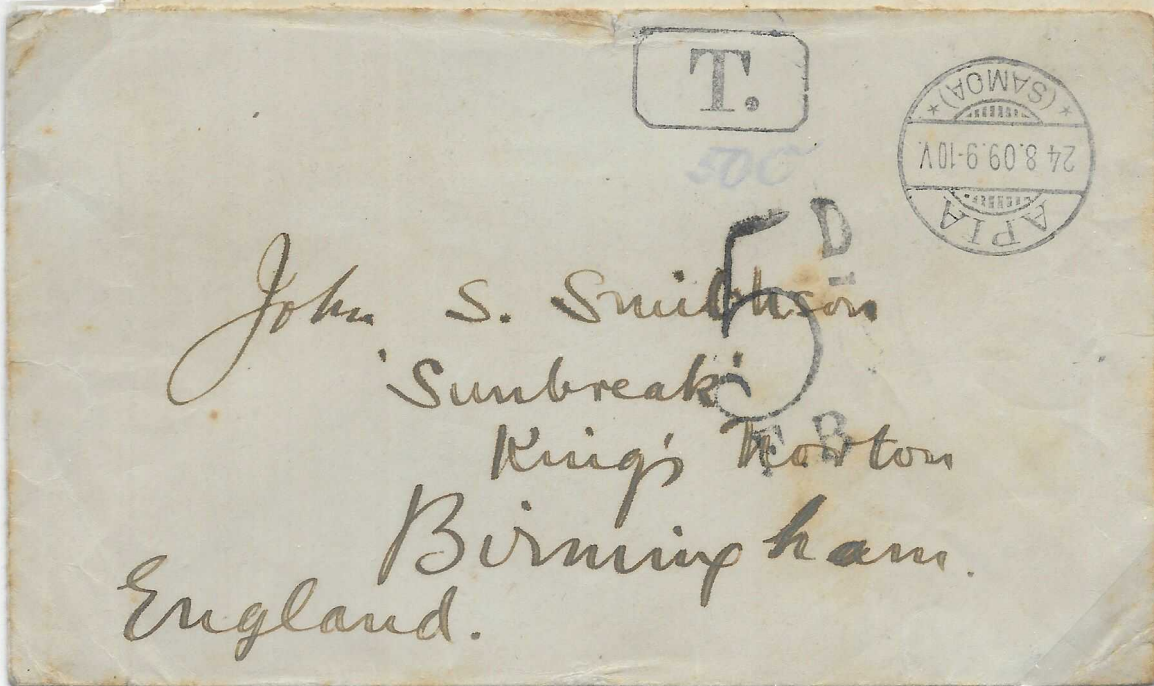 T.
50c
★ (SAMOA) ★
24.8.09.9-10V.
APIA
5D
1
F.B
John S. Smithson
'Sunbreak'
King's Norton
Birmingham.
England.